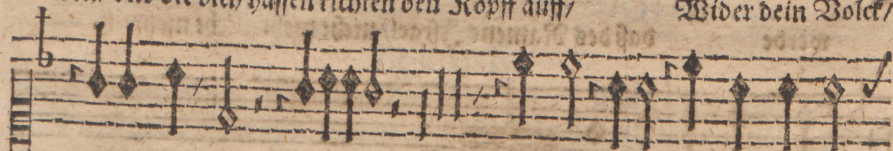 die dich hassen richten den Kopff auff/ Wider dein Volck/